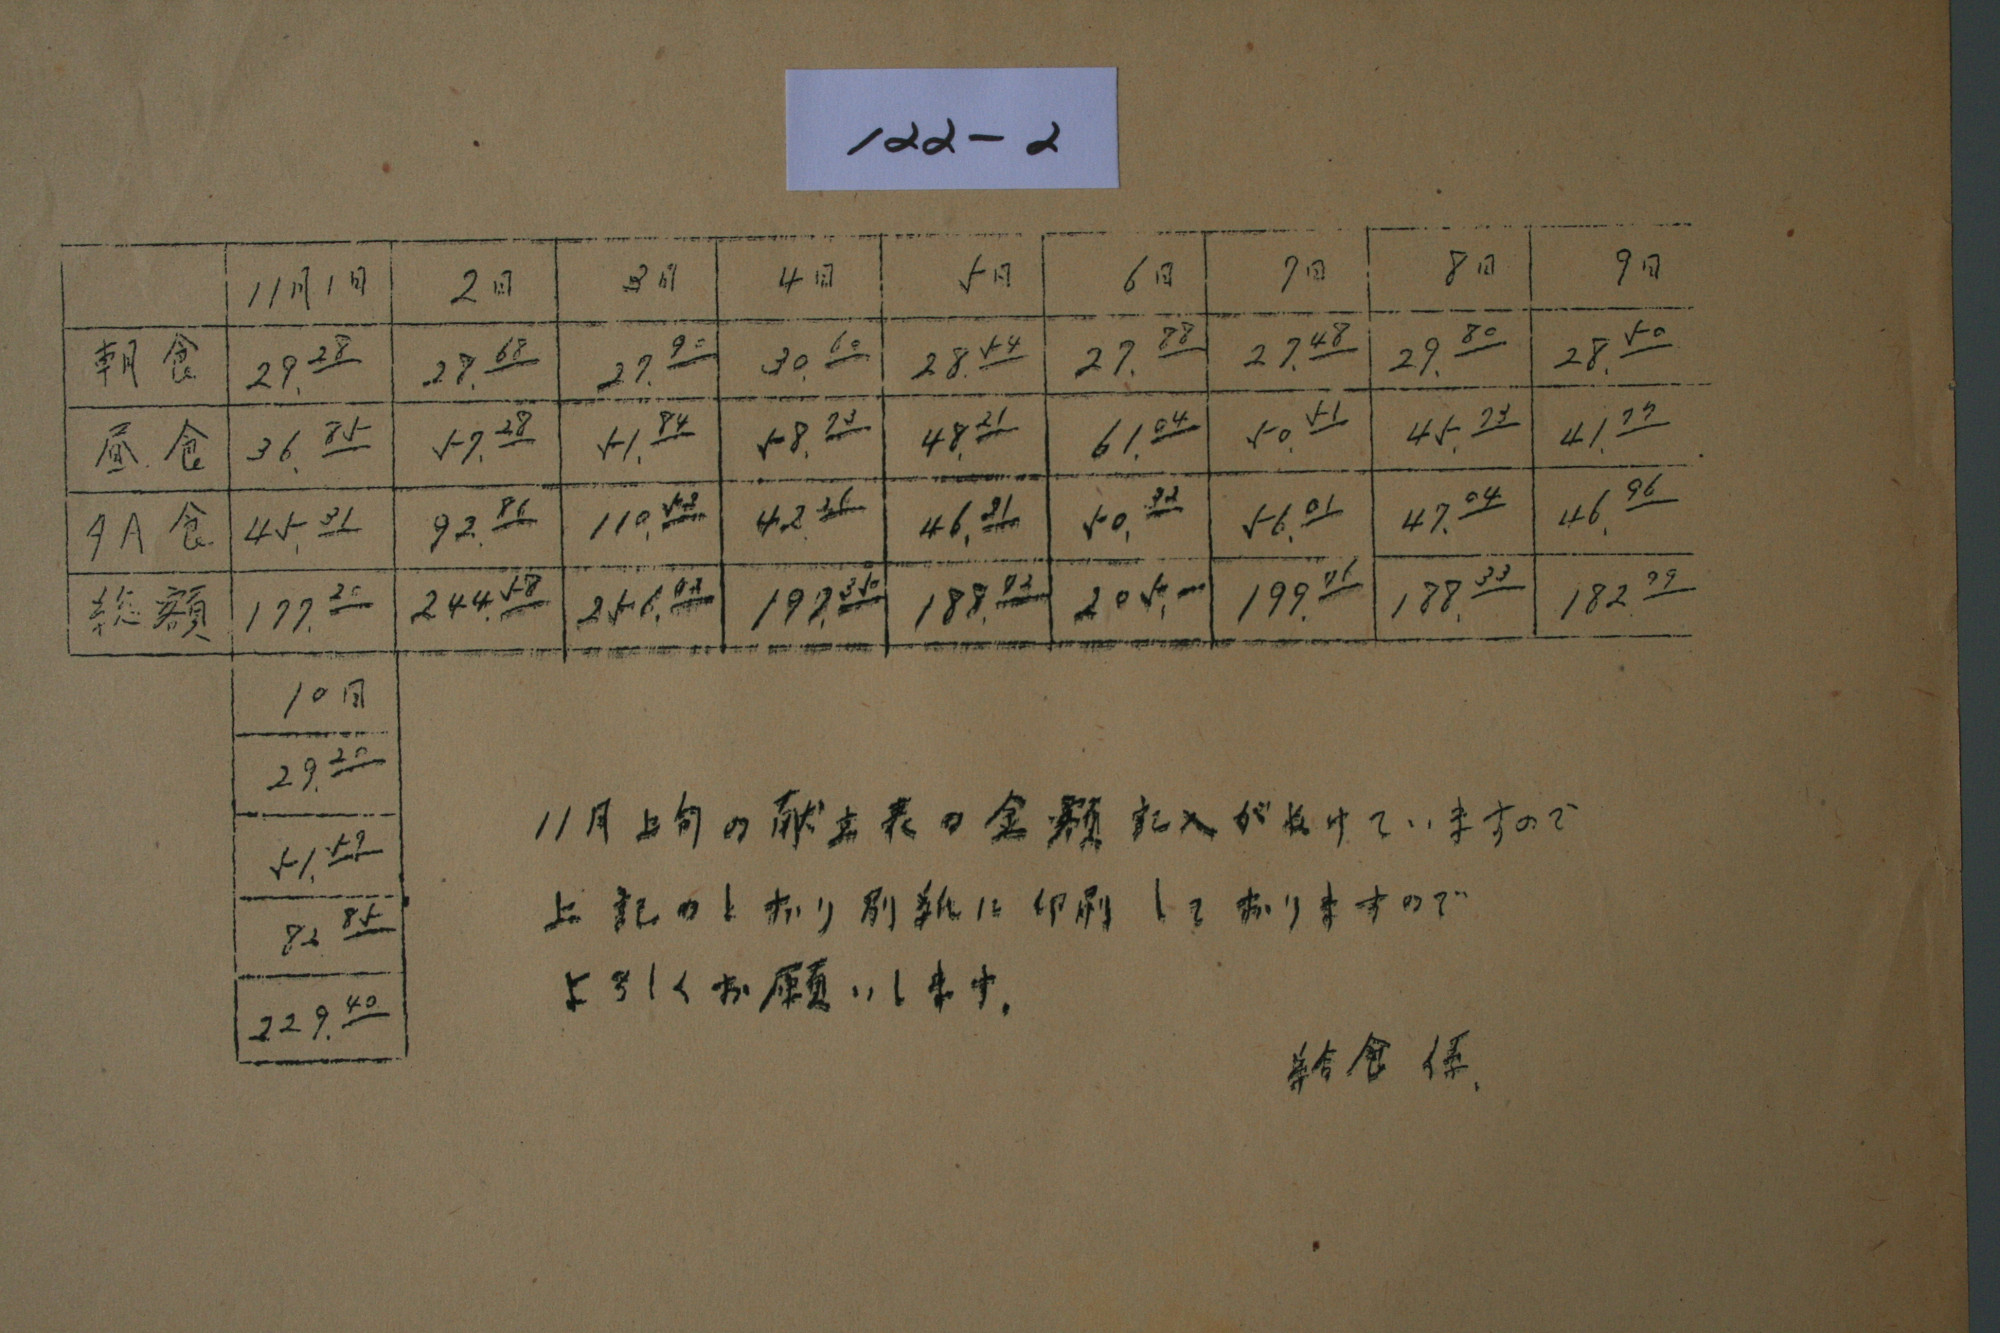 122-2
11月1日 2日 3日 4日 5日 6日 7日 8日 9日
朝食 29.28 28.68 27.90 30.60 28.54 27.88 27.48 29.80 28.50
昼食 36.85 57.28 51.84 58.73 48.21 61.04 50.51 45.73 41.77
夕食 45.31 92.86 110.53 42.26 46.21 50.32 56.01 47.04 46.96
総額 177.20 244.58 256.03 197.35 188.73 205.― 199.76 188.33 182.79
10日
29.20
51.59
82.85
229.40
11月上旬の献立表の金額記入がぬけていますので
上記のとおり別紙に印刷しておりますので
よろしくお願いします。
給食係.